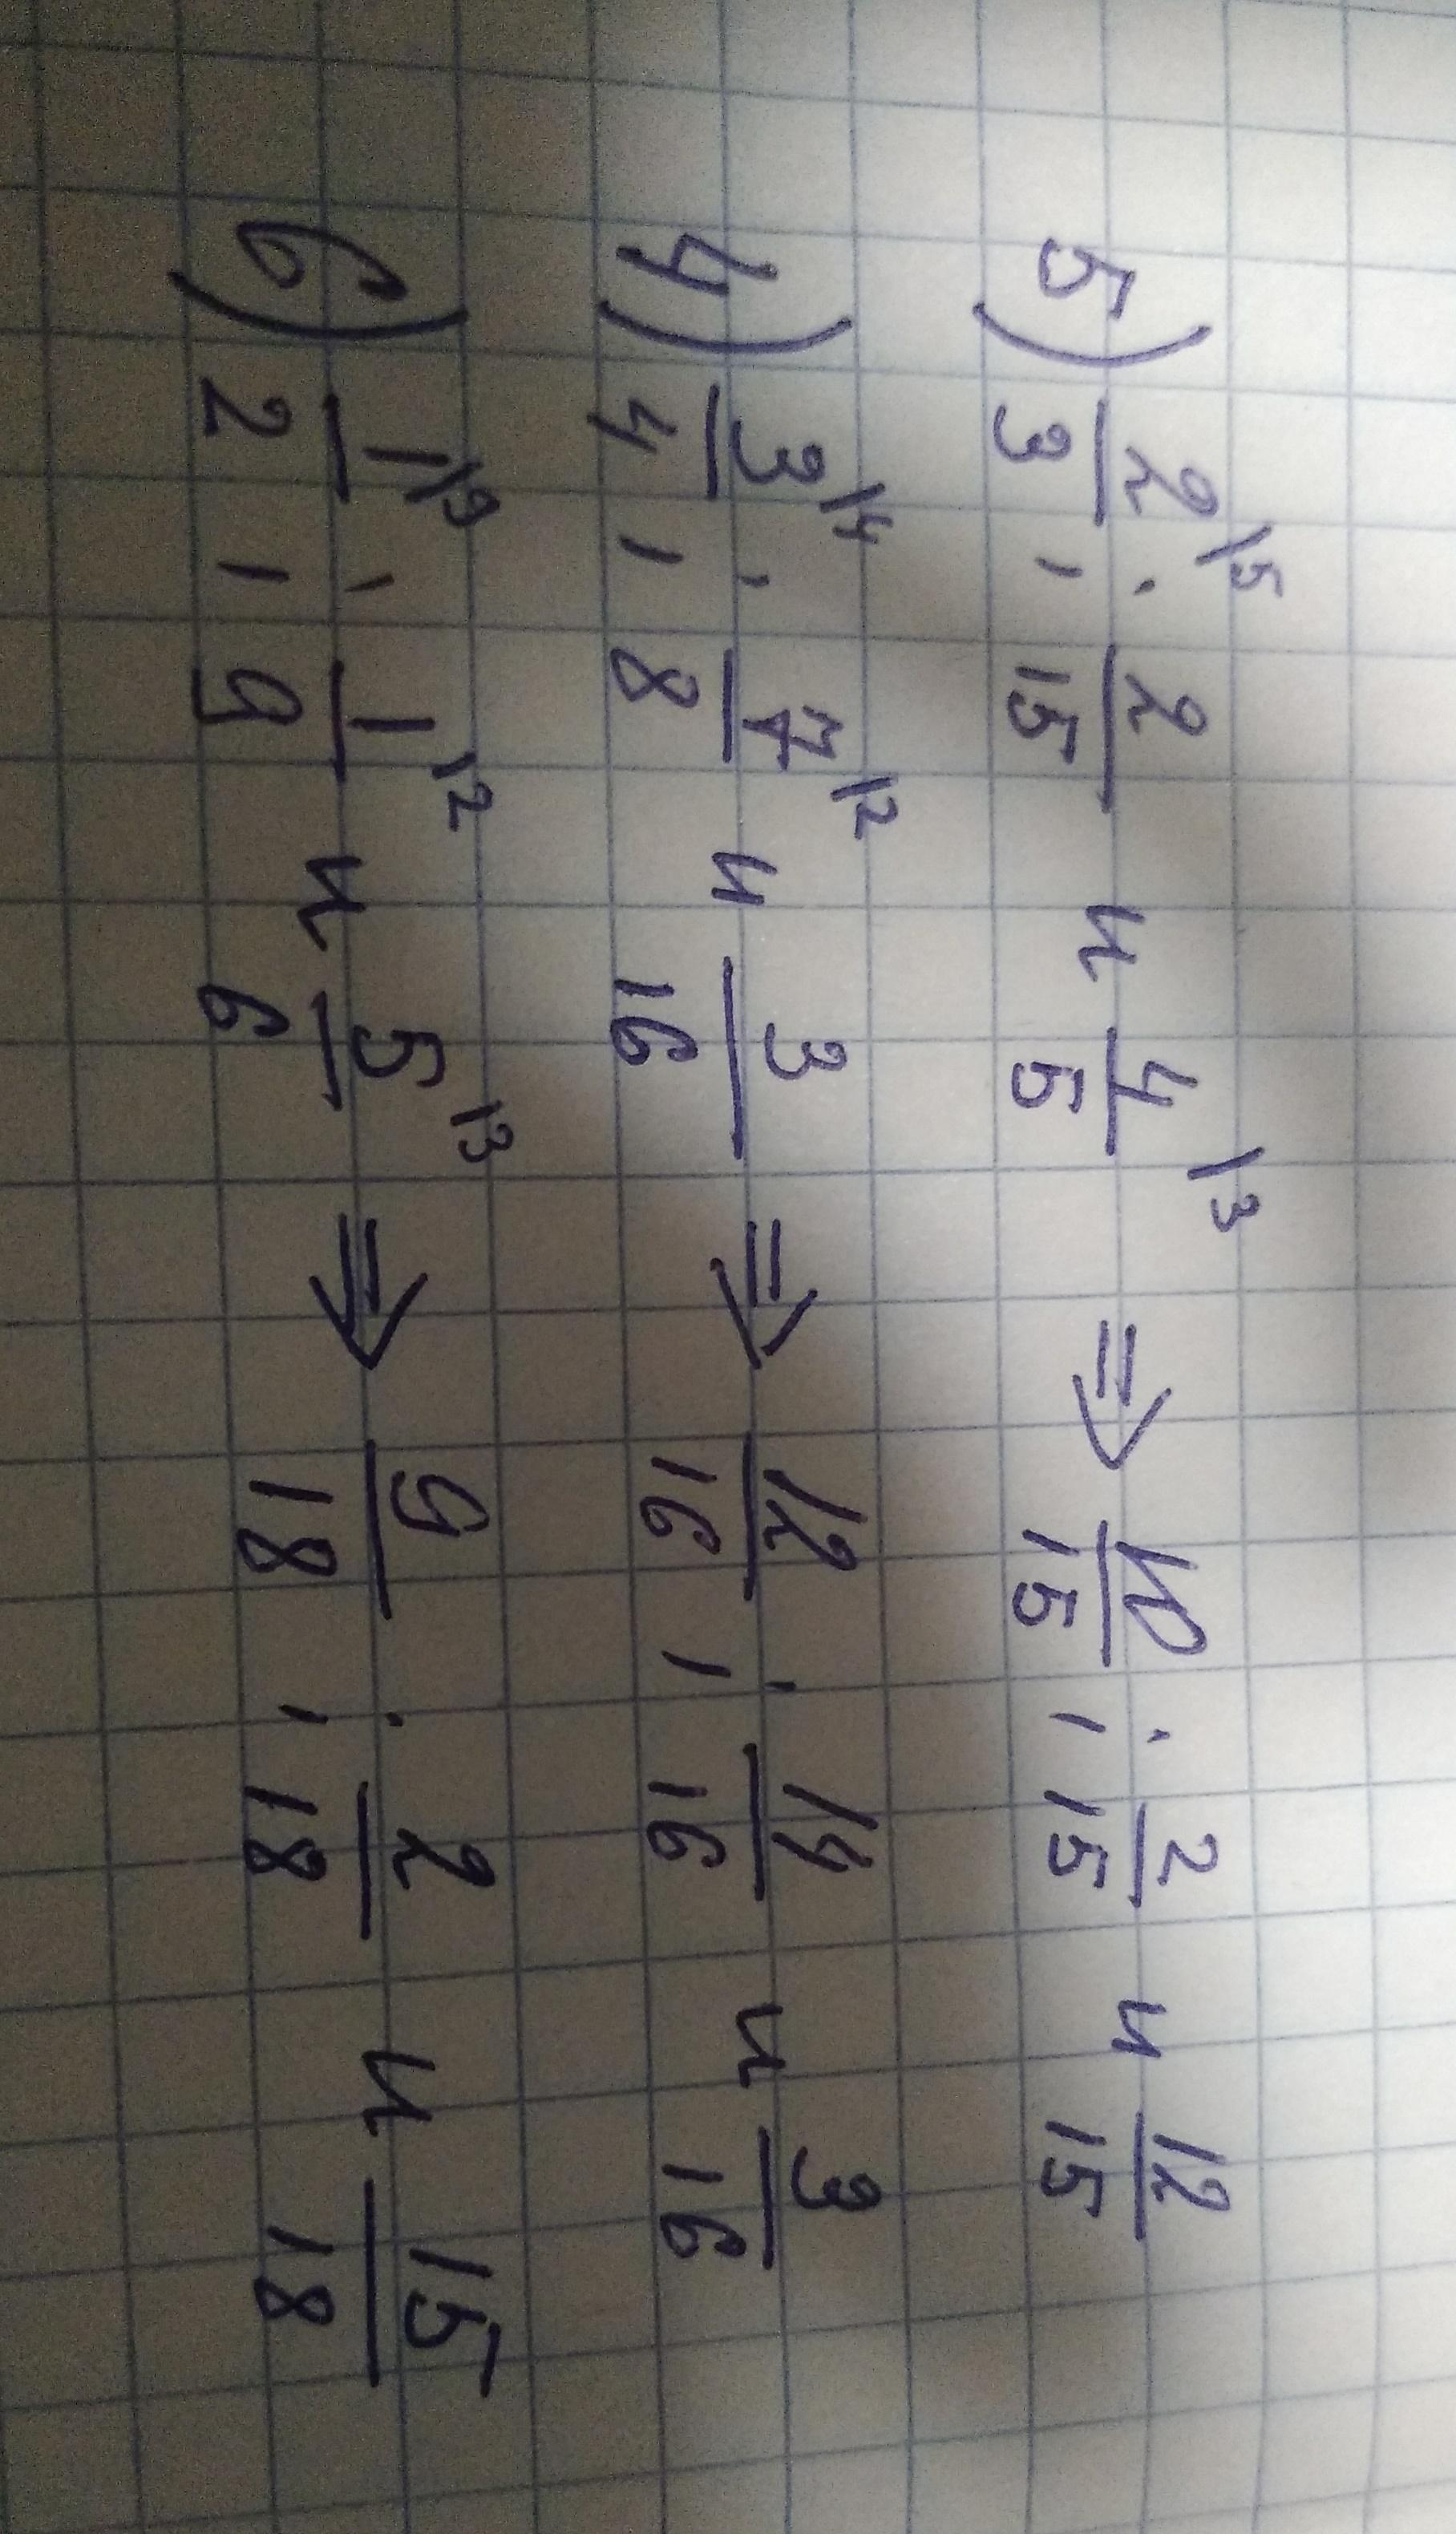 5) 2/3 \5 ; 2/15 и 4/5 \3 ⇒ 10/15 ; 2/15 и 12/15
4) 3/4 \4 ; 7/8 \2 и 3/16 ⇒ 12/16 ; 14/16 и 3/16
6) 1/2 \9 ; 1/9 \2 и 5/6 \3 ⇒ 9/18 ; 2/18 и 15/18